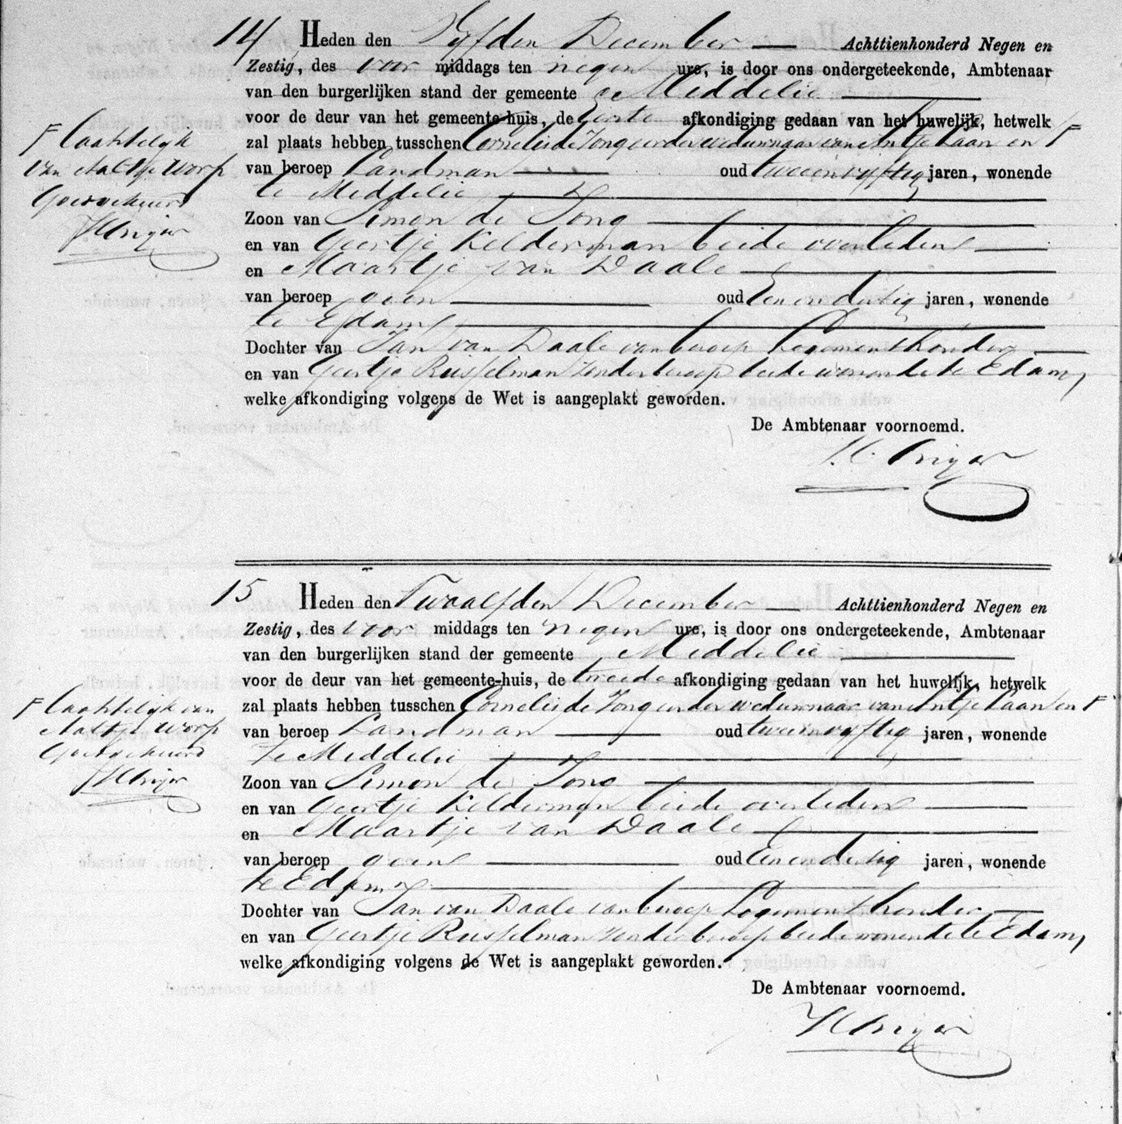 14 Heden den Vyfden December Achttienhonderd Negen en
Zestig, des voor middags ten negen ure, is door ons ondergeteekende, Ambtenaar
van den burgerlijken stand der gemeente Middelie
voor de deur van het gemeente-huis, de eerste afkondiging gedaan van het huwelijk, hetwelk
zal plaats hebben tusschen Cornelis de Jong eerder weduwnaar van Antje Laan en F
F Laatstelyk
van Aaltje Worp
Goedgekeurd
van beroep Landman oud twee en vyftig jaren, wonende
te Middelie
Zoon van Simon de Jong
en van Geertje Kelderman beide overleden
en Maartje van Daale
van beroep geen oud Een en dertig jaren, wonende
te Edam
Dochter van Jan van Daale van beroep Logementhouder
en van Geertje Ruisselman zonder beroep beide wonende te Edam,
welke afkondiging volgens de Wet is aangeplakt geworden.
De Ambtenaar voornoemd.
15 Heden den Twaalfden December Achttienhonderd Negen en
Zestig, des voor middags ten negen ure, is door ons ondergeteekende, Ambtenaar
van den burgerlijken stand der gemeente Middelie
voor de deur van het gemeente-huis, de tweede afkondiging gedaan van het huwelijk, hetwelk
zal plaats hebben tusschen Cornelis de Jong eerder weduwnaar van Antje Laan en F
F Laatstelyk van
Aaltje Worp
Goedgekeurd
van beroep Landman oud twee en vyftig jaren, wonende
te Middelie
Zoon van Simon de Jong
en van Geertje Kelderman beide overleden
en Maartje van Daale
van beroep geen oud Een en dertig jaren, wonende
te Edam
Dochter van Jan van Daale van beroep Logementhouder
en van Geertje Ruisselman zonder beroep beide wonende te Edam,
welke afkondiging volgens de Wet is aangeplakt geworden.
De Ambtenaar voornoemd.